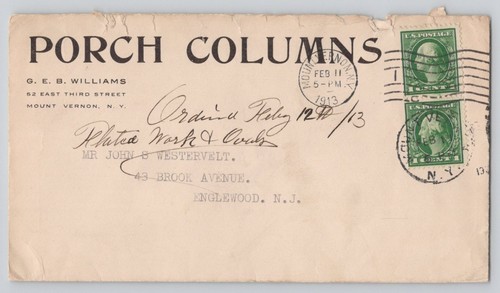 PORCH COLUMNS
G. E. B. WILLIAMS
52 EAST THIRD STREET
MOUNT VERNON, N. Y.
MOUNT VERNON, N.Y.
FEB 11
5-PM
1913
U.S. POSTAGE
1 CENT 1
U.S. POSTAGE
1 CENT 1
N.Y.
Ordered Feby 12th/13
Related Work &
MR JOHN S WESTERVELT.
43 BROOK AVENUE.
ENGLEWOOD. N.J.